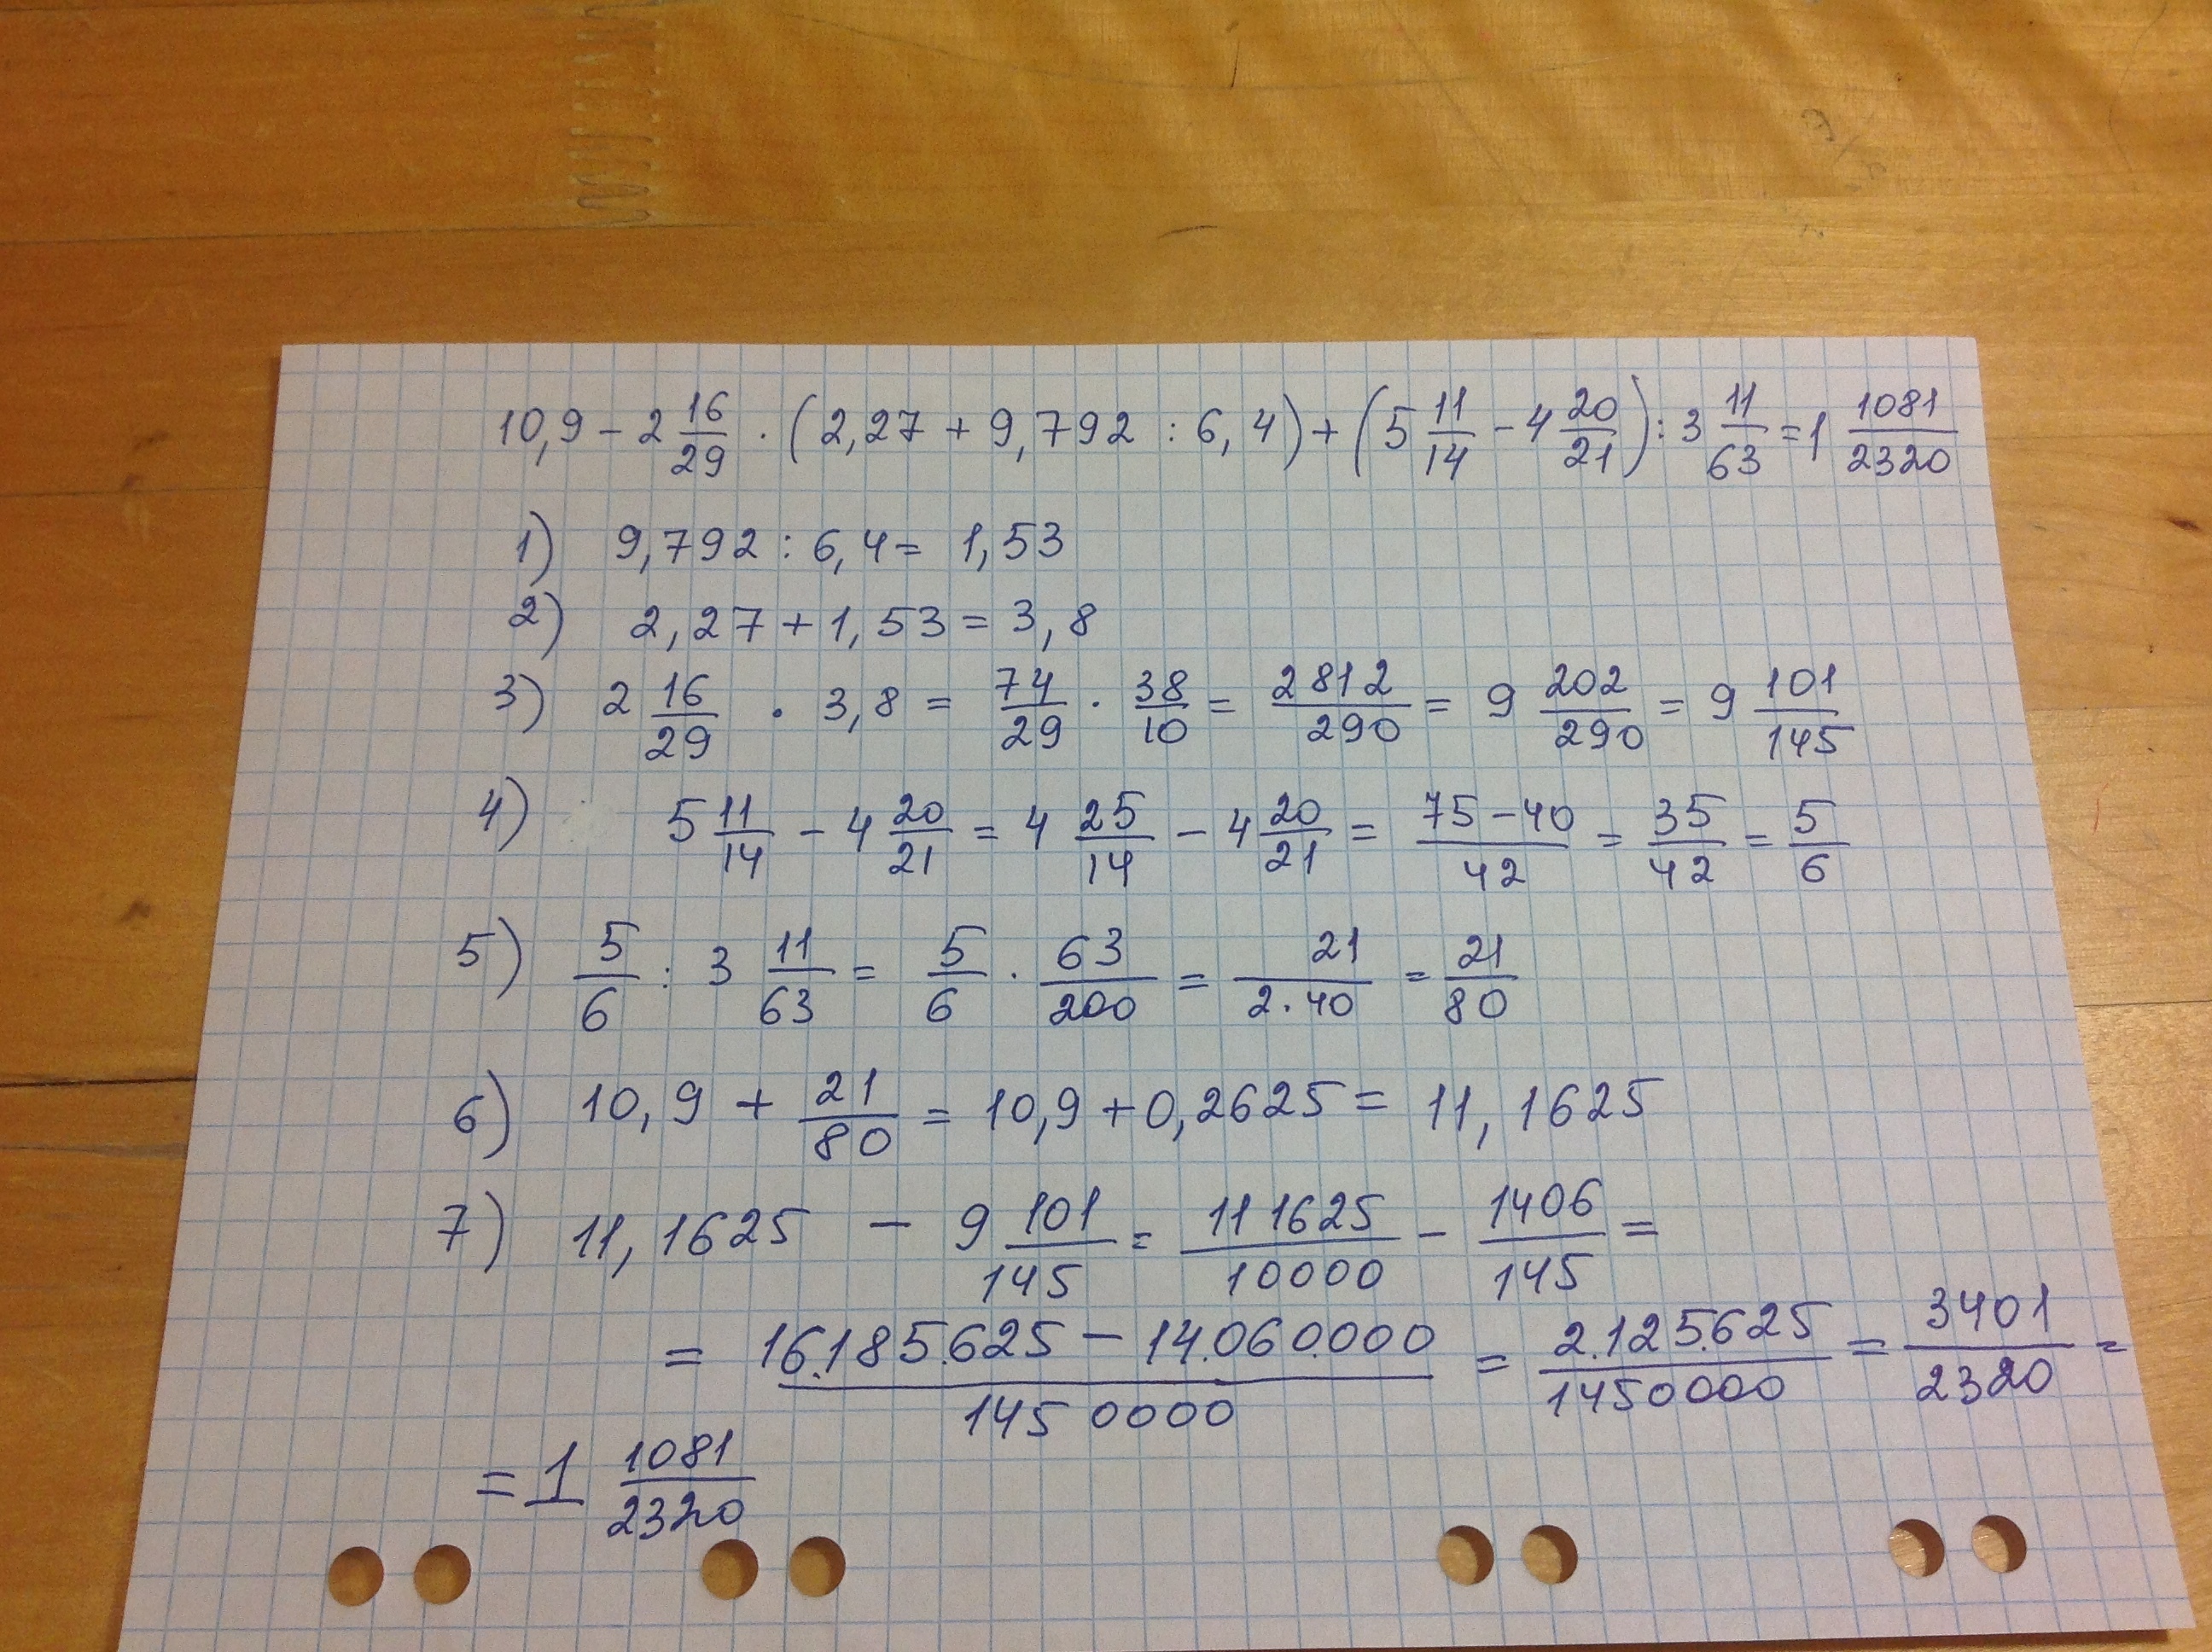 10,9 - 2 16/29 · (2,27 + 9,792 : 6,4) + (5 11/14 - 4 20/21) : 3 11/63 = 1 1081/2320
1) 9,792 : 6,4 = 1,53
2) 2,27 + 1,53 = 3,8
3) 2 16/29 · 3,8 = 74/29 · 38/10 = 2812/290 = 9 202/290 = 9 101/145
4) 5 11/14 - 4 20/21 = 4 25/14 - 4 20/21 = 75-40/42 = 35/42 = 5/6
5) 5/6 : 3 11/63 = 5/6 · 63/200 = 21/2·40 = 21/80
6) 10,9 + 21/80 = 10,9 + 0,2625 = 11,1625
7) 11,1625 - 9 101/145 = 111625/10000 - 1406/145 =
= 16.185.625 - 14.060.000/1450000 = 2.125.625/1450000 = 3401/2320 =
= 1 1081/2320